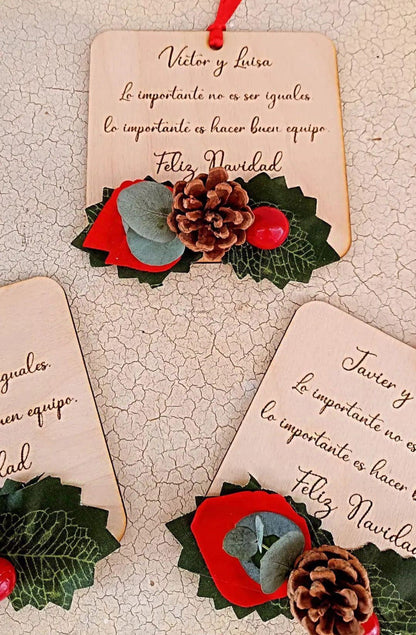 Victor y Luisa
Lo importante no es ser iguales.
lo importante es hacer buen equipo.
Feliz Navidad
iguales.
buen equipo.
Javier y
Lo importante no
lo importante es hacer
Feliz Navidad